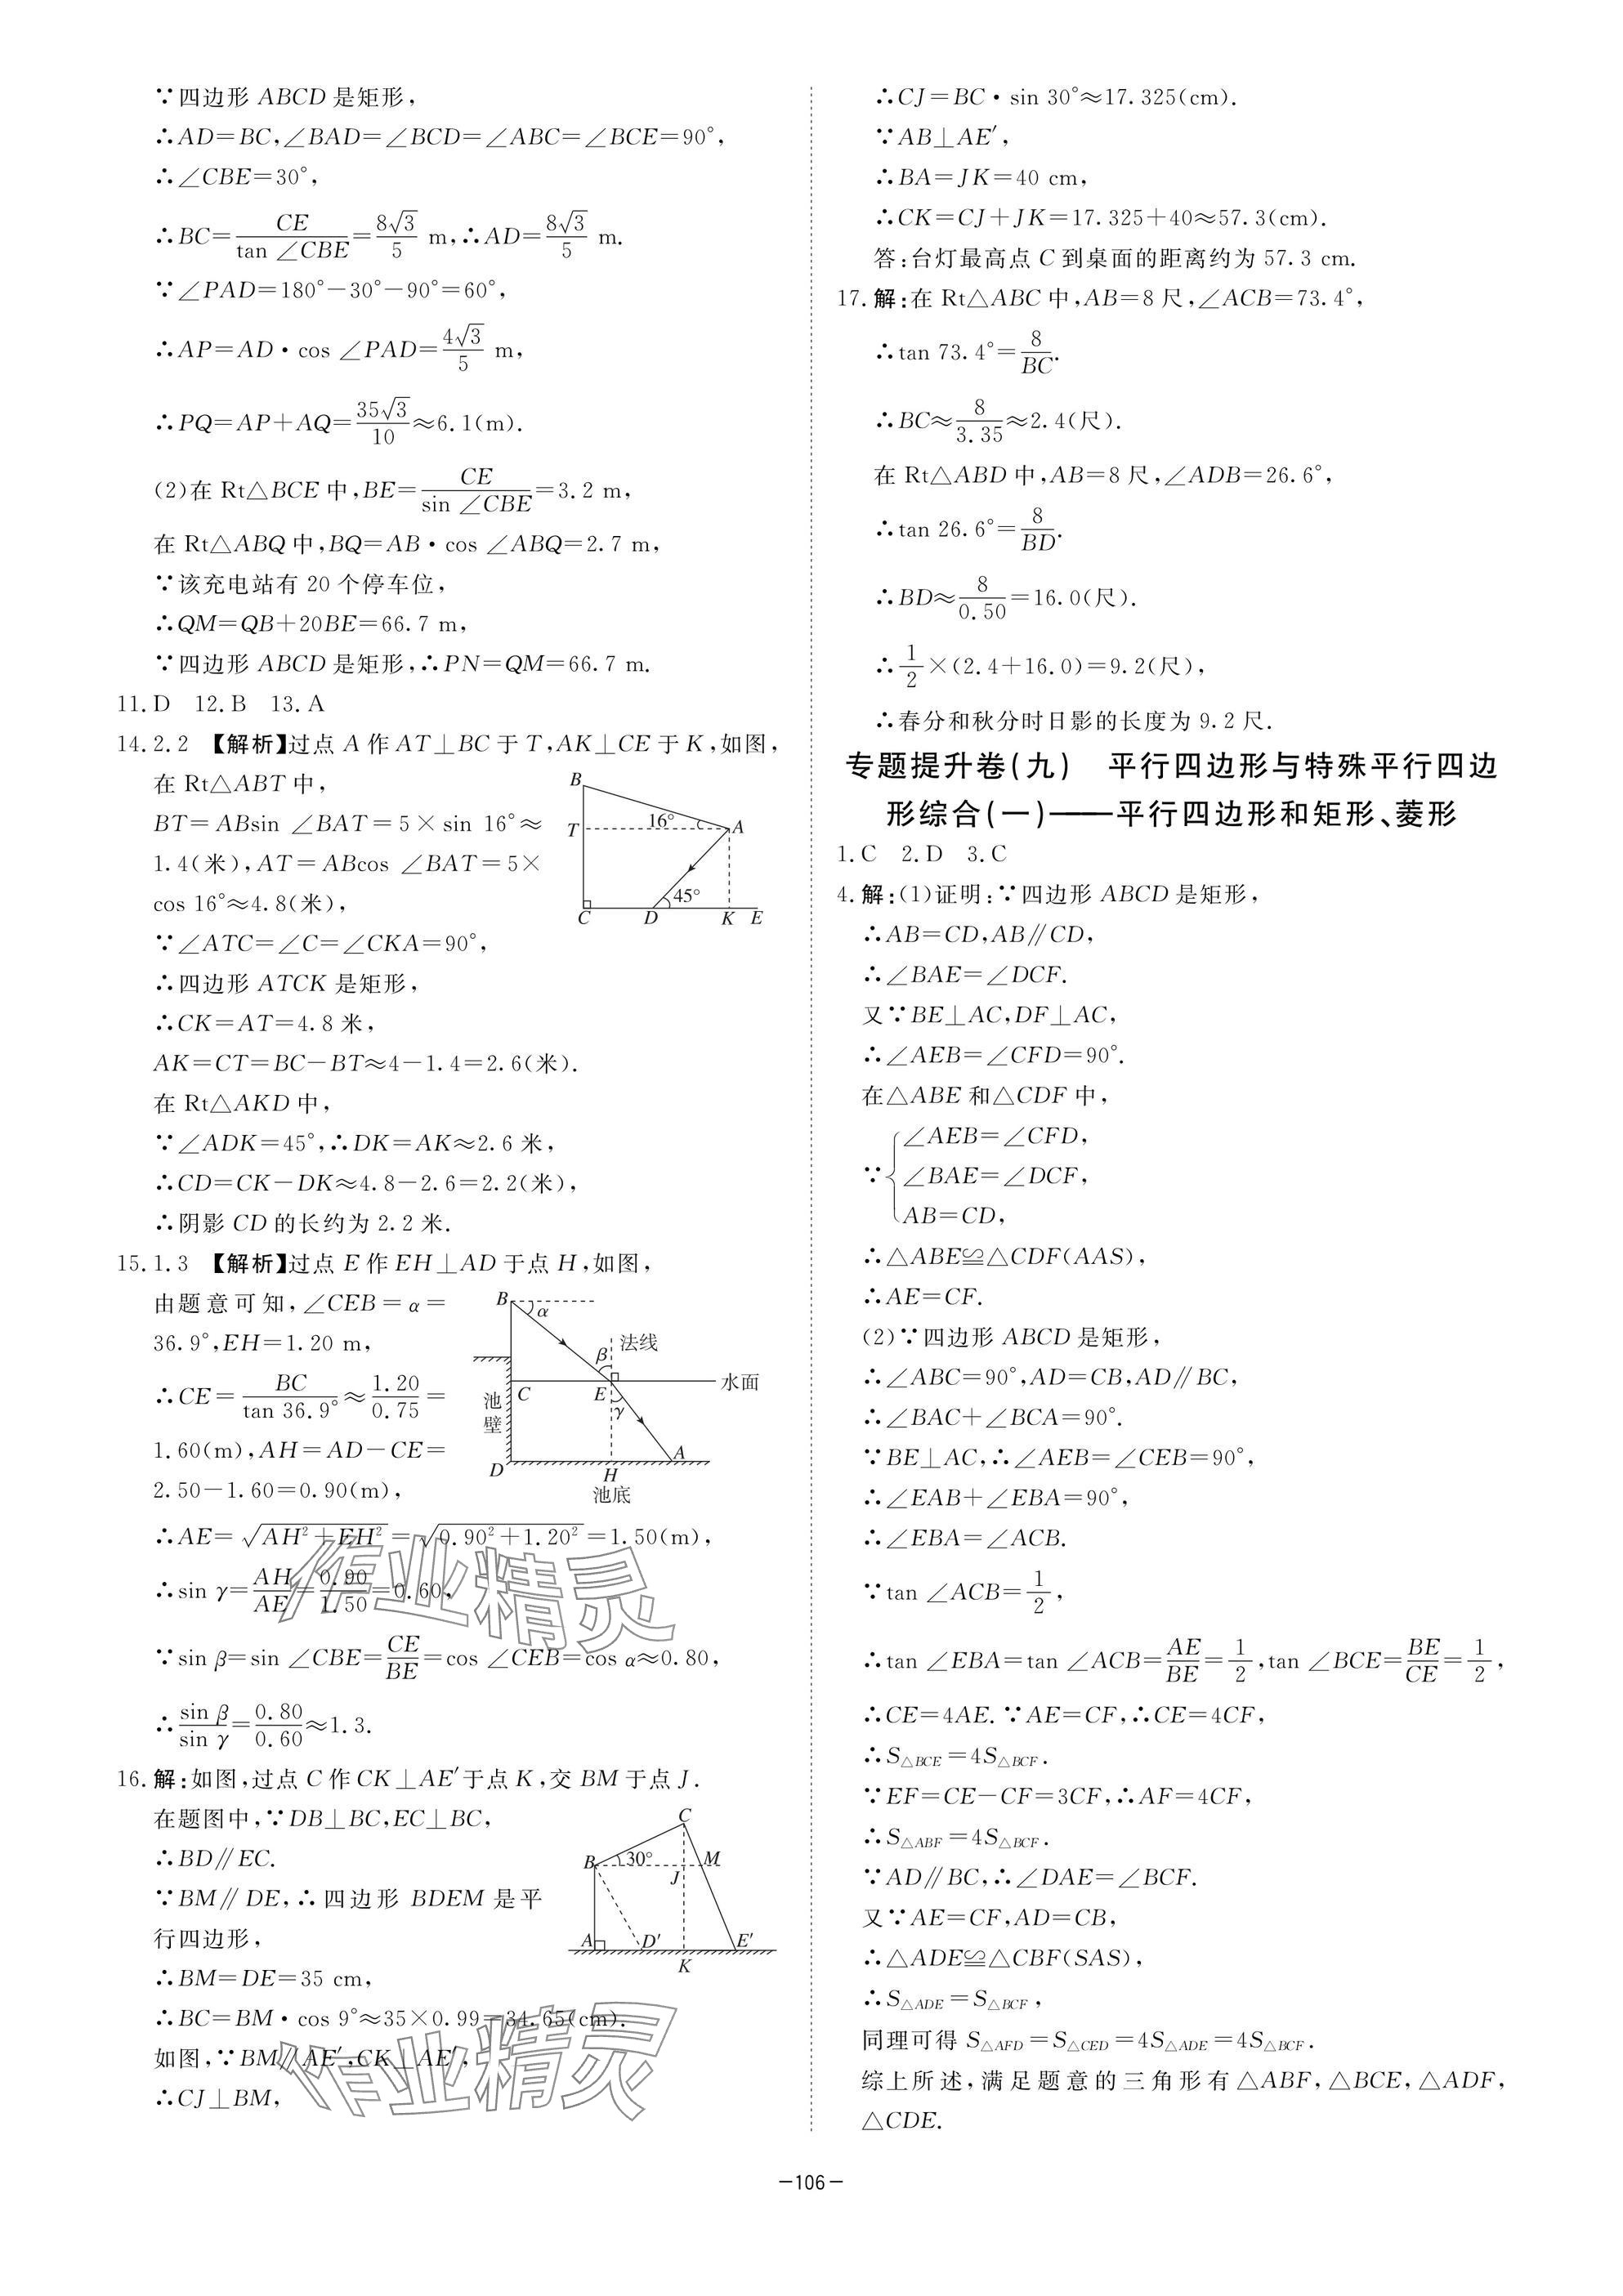 ∵四边形 ABCD 是矩形，
∴AD=BC,∠BAD=∠BCD=∠ABC=∠BCE=90°,
∴∠CBE=30°,
∴BC=CE/tan ∠CBE=8√3/5 m,∴AD=8√3/5 m.
∵∠PAD=180°-30°-90°=60°,
∴AP=AD·cos ∠PAD=4√3/5 m,
∴PQ=AP+AQ=35√3/10≈6.1(m).
(2)在 Rt△BCE 中,BE=CE/sin ∠CBE=3.2 m,
在 Rt△ABQ 中,BQ=AB·cos ∠ABQ=2.7 m,
∵该充电站有 20 个停车位,
∴QM=QB+20BE=66.7 m,
∵四边形 ABCD 是矩形,∴PN=QM=66.7 m.
11.D 12.B 13.A
14.2.2 【解析】过点 A 作 AT⊥BC 于 T,AK⊥CE 于 K,如图,
在 Rt△ABT 中,
BT=ABsin ∠BAT=5×sin 16°≈
1.4(米),AT=ABcos ∠BAT=5×
cos 16°≈4.8(米),
B
T
16°
A
45°
C
D
K
E
∵∠ATC=∠C=∠CKA=90°,
∴四边形 ATCK 是矩形,
∴CK=AT=4.8 米,
AK=CT=BC-BT≈4-1.4=2.6(米).
在 Rt△AKD 中,
∵∠ADK=45°,∴DK=AK≈2.6 米,
∴CD=CK-DK≈4.8-2.6=2.2(米),
∴阴影 CD 的长约为 2.2 米.
15.1.3 【解析】过点 E 作 EH⊥AD 于点 H,如图,
由题意可知,∠CEB=α=
36.9°,EH=1.20 m,
∴CE=BC/tan 36.9°≈1.20/0.75=
1.60(m),AH=AD-CE=
2.50-1.60=0.90(m),
B
α
法线
β
水面
C
E
γ
池壁
A
D
H
池底
∴AE=√(AH²+EH²)=√(0.90²+1.20²)=1.50(m),
∴sin γ=AH/AE=0.90/1.50=0.60,
∵sin β=sin ∠CBE=CE/BE=cos ∠CEB=cos α≈0.80,
∴sin β/sin γ=0.80/0.60≈1.3.
16.解:如图,过点 C 作 CK⊥AE′于点 K,交 BM 于点 J.
在题图中,∵DB⊥BC,EC⊥BC,
∴BD∥EC.
∵BM∥DE,∴四边形 BDEM 是平
行四边形,
∴BM=DE=35 cm,
C
B
30°
M
J
A
D′
E′
K
∴BC=BM·cos 9°≈35×0.99=34.65(cm).
如图,∵BM∥AE′,CK⊥AE′,
∴CJ⊥BM,
∴CJ=BC·sin 30°≈17.325(cm).
∵AB⊥AE′,
∴BA=JK=40 cm,
∴CK=CJ+JK=17.325+40≈57.3(cm).
答:台灯最高点 C 到桌面的距离约为 57.3 cm.
17.解:在 Rt△ABC 中,AB=8 尺,∠ACB=73.4°,
∴tan 73.4°=8/BC.
∴BC≈8/3.35≈2.4(尺).
在 Rt△ABD 中,AB=8 尺,∠ADB=26.6°,
∴tan 26.6°=8/BD.
∴BD≈8/0.50=16.0(尺).
∴1/2×(2.4+16.0)=9.2(尺),
∴春分和秋分时日影的长度为 9.2 尺.
专题提升卷(九) 平行四边形与特殊平行四边
形综合(一)——平行四边形和矩形、菱形
1.C 2.D 3.C
4.解:(1)证明:∵四边形 ABCD 是矩形,
∴AB=CD,AB∥CD,
∴∠BAE=∠DCF.
又∵BE⊥AC,DF⊥AC,
∴∠AEB=∠CFD=90°.
在△ABE 和△CDF 中,
∵{∠AEB=∠CFD,
∠BAE=∠DCF,
AB=CD,
∴△ABE≌△CDF(AAS),
∴AE=CF.
(2)∵四边形 ABCD 是矩形,
∴∠ABC=90°,AD=CB,AD∥BC,
∴∠BAC+∠BCA=90°.
∵BE⊥AC,∴∠AEB=∠CEB=90°,
∴∠EAB+∠EBA=90°,
∴∠EBA=∠ACB.
∵tan ∠ACB=1/2,
∴tan ∠EBA=tan ∠ACB=AE/BE=1/2,tan ∠BCE=BE/CE=1/2,
∴CE=4AE.∵AE=CF,∴CE=4CF,
∴S△BCE=4S△BCF.
∵EF=CE-CF=3CF,∴AF=4CF,
∴S△ABF=4S△BCF.
∵AD∥BC,∴∠DAE=∠BCF.
又∵AE=CF,AD=CB,
∴△ADE≌△CBF(SAS),
∴S△ADE=S△BCF,
同理可得 S△AFD=S△CED=4S△ADE=4S△BCF.
综上所述,满足题意的三角形有△ABF,△BCE,△ADF,
△CDE.
作业精灵
作业精灵
-106-